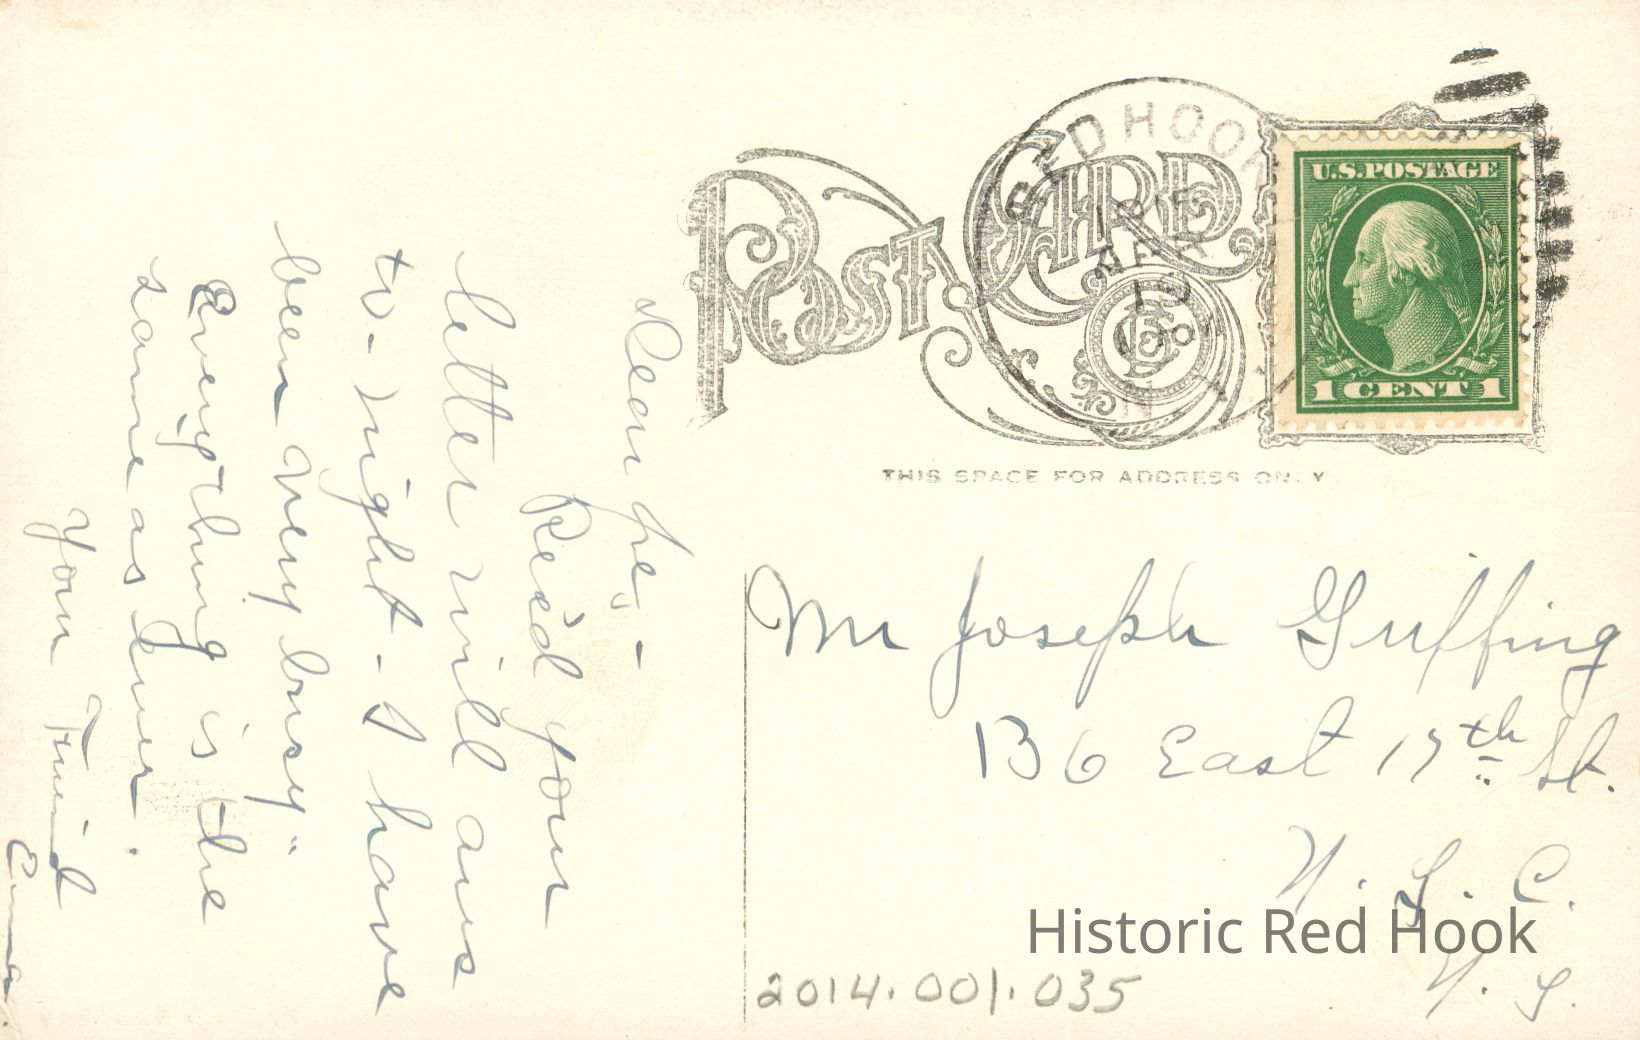 POST CARD
RED HOOK
MAR
U.S. POSTAGE
1 CENT 1
THIS SPACE FOR ADDRESS ONLY
Dear Joe" -
Rec'd your
letter will ans
to-night - I have
been very busy"
Everything is the
same as ever.
Your Friend
Mr Joseph Griffing
136 East 17th St.
N. Y. C.
N. Y.
Historic Red Hook
2014.001.035